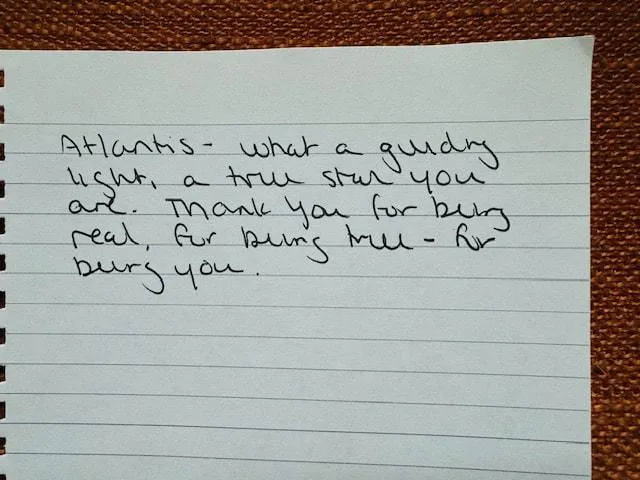 Atlantis - what a guiding
light, a true star you
are. Thank you for being
real, for being true - for
being you.